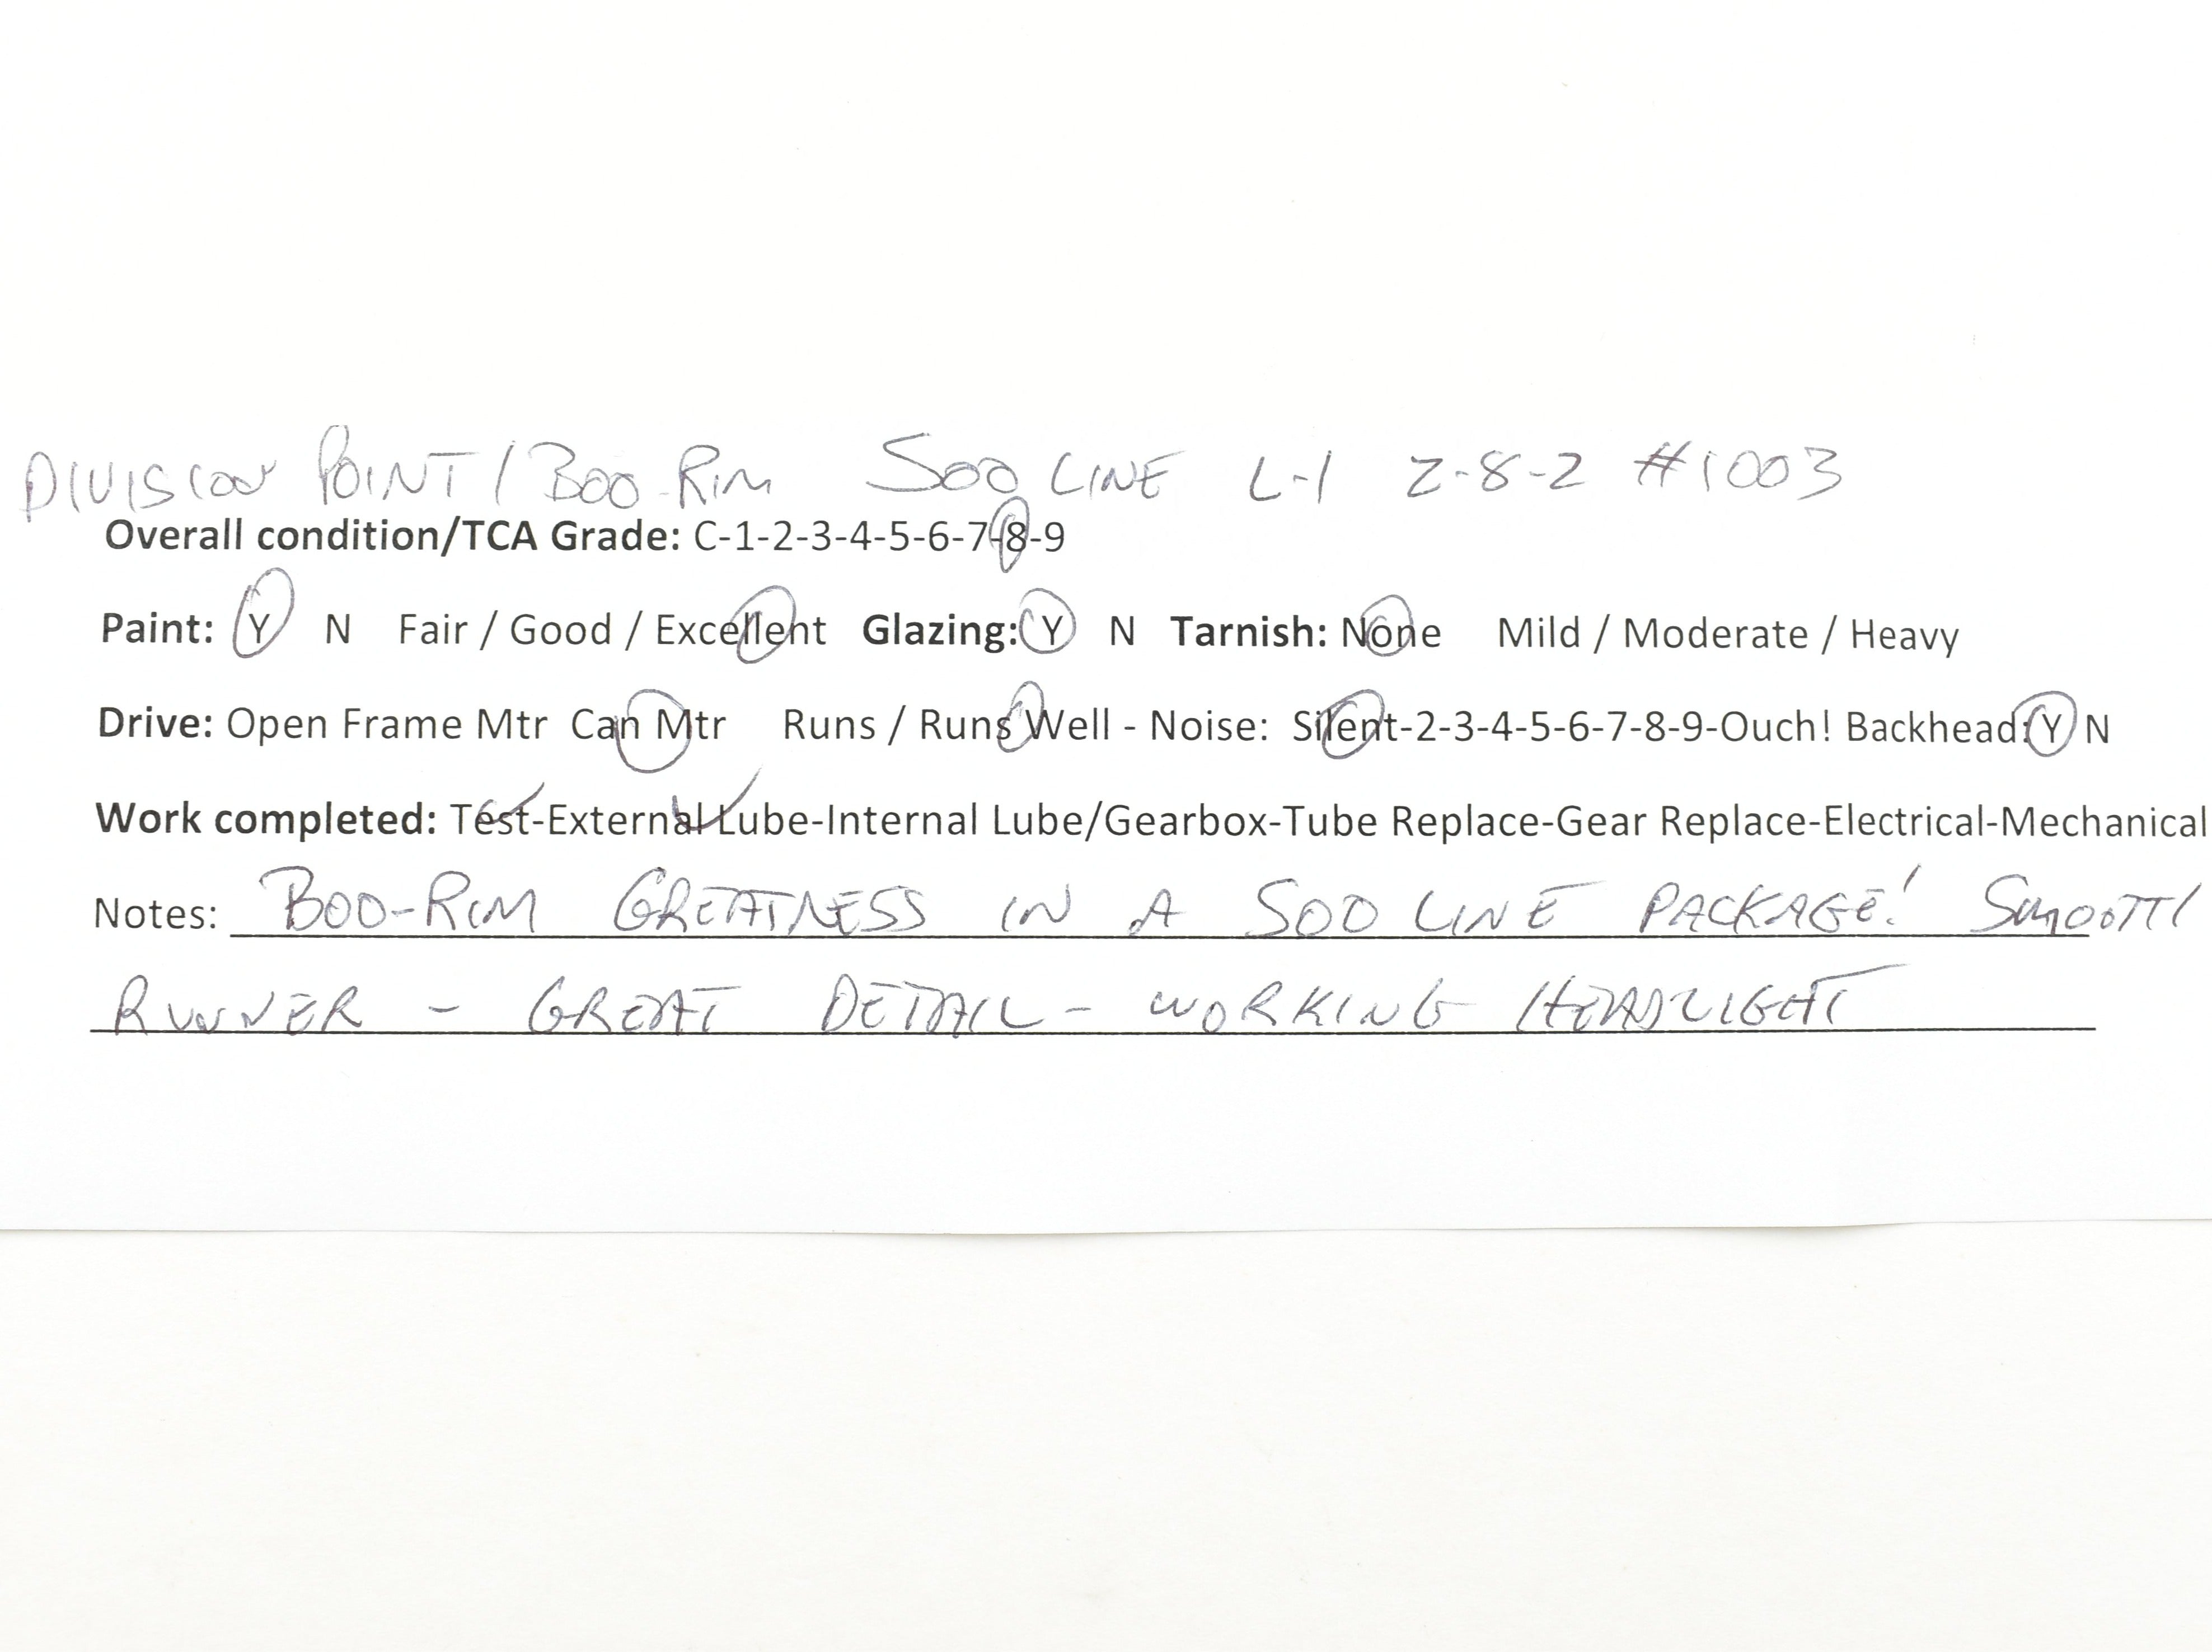 DIVISION POINT / BOO-RIM SOO LINE L-1 2-8-2 #1003
Overall condition/TCA Grade: C-1-2-3-4-5-6-7-8-9
Paint: Y N Fair / Good / Excellent Glazing: Y N Tarnish: None Mild / Moderate / Heavy
Drive: Open Frame Mtr Can Mtr Runs / Runs Well - Noise: Silent-2-3-4-5-6-7-8-9-Ouch! Backhead: Y N
Work completed: Test-External Lube-Internal Lube/Gearbox-Tube Replace-Gear Replace-Electrical-Mechanical
Notes: BOO-RIM GREATNESS IN A SOO LINE PACKAGE! SMOOTH
RUNNER - GREAT DETAIL - WORKING HEADLIGHT